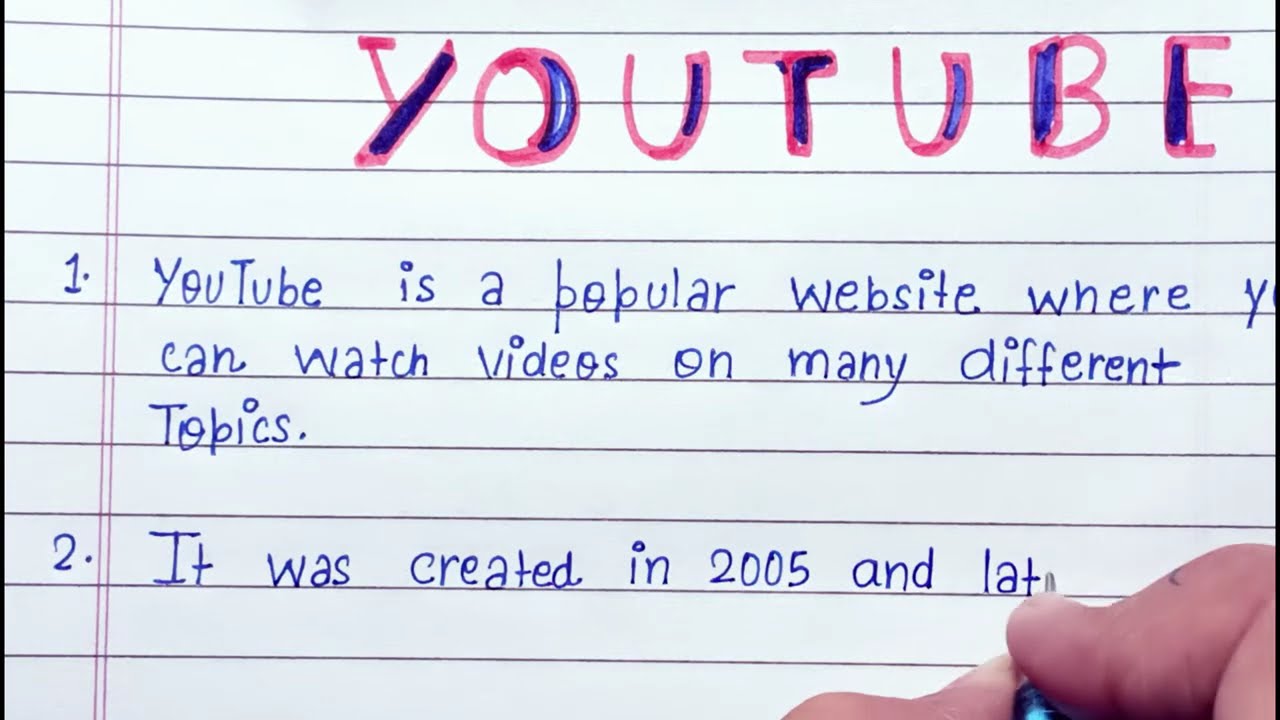 YOUTUBE
1. YouTube is a popular website where y
can watch videos on many different
Topics.
2. It was created in 2005 and lat